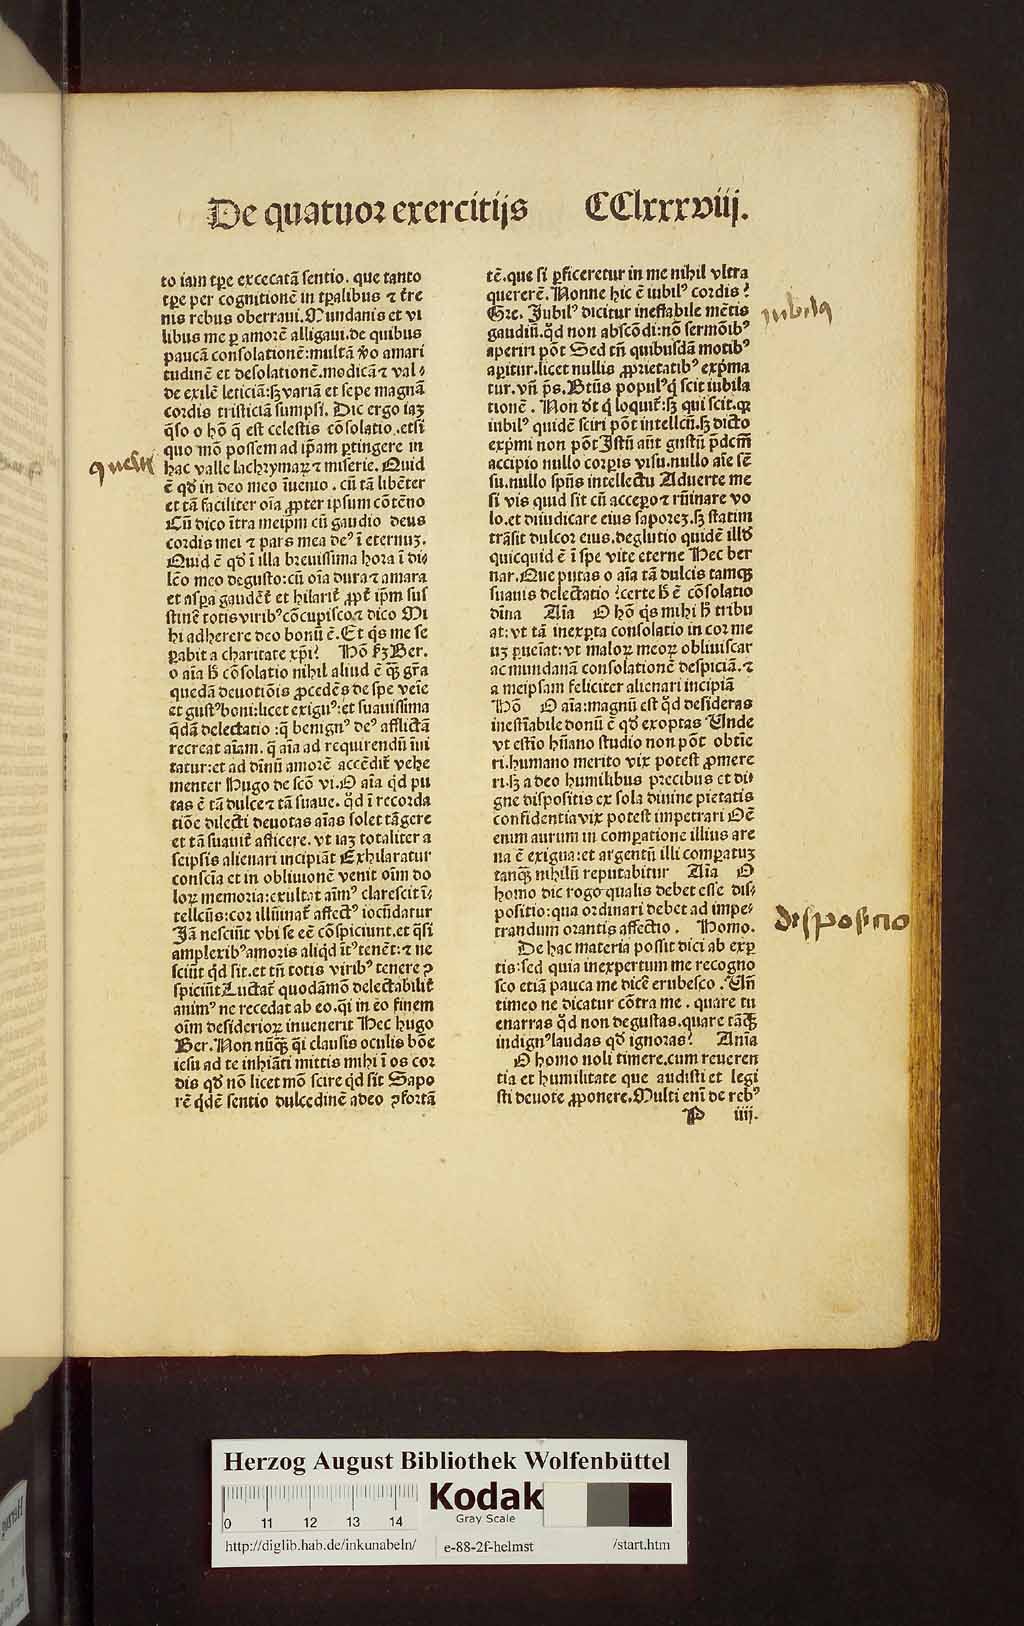 De quatuor exercitijs CClxxxviij.
to iam tꝑe excecatā sentio. que tanto
tꝑe per cognitionē in tꝑalibus ⁊ t̄re
nis rebus oberraui. Mundanis et vi
libus me ꝑ amorē alligaui. de quibus
paucā consolationē: multā v̄o amari
tudinē et desolationē. modicā ⁊ val⸗
de exilē leticiā: sꝫ variā et sepe magnā
cordis tristiciā sumpsi. Dic ergo iaꝫ
q̄so o hō q̄ est celestis cōsolatio. etsi
quo mō possem ad ip̄am ꝑtingere in
hac valle lachrymaꝝ ⁊ miserie. Quid
ē qd̄ in deo meo īuenio. cū tā libēter
et tā faciliter oīa ꝓpter ipsum cōtēno
Cū dico ītra meip̄m cū gaudio deus
cordis mei ⁊ pars mea deꝰ ī eternuꝫ.
Quid ē qd̄ ī illa breuissima hora ī di⸗
lēo meo degusto: cū oīa dura ⁊ amara
et asꝑa gaudēt̄ et hilarit̄ ꝓpt̄ ip̄m sus
stinē totis viribꝰ cōcupisco ⁊ dico Mi
hi adherere deo bonū ē. Et q̄s me se
ꝑabit a charitate xp̄i? Hō ẜꝫ Ber.
o aīa h̄ cōsolatio nihil aliud ē q̄ꝫ gr̄a
quedā deuotiōis ꝓcedēs de spe veīe
et gustꝰ boni: licet exiguꝰ: et suauissima
q̄dā delectatio: q̄ benignꝰ deꝰ afflictā
recreat aīam. q̄ aīa ad requirendū īui
tatur: et ad dīnū amorē accēdit̄ vehe
menter Hugo de scō vi. O aīa qd̄ pu
tas ē tā dulce ⁊ tā suaue. qd̄ ī recorda
tiōe dilecti deuotas aīas solet tāgere
et tā suauit̄ afficere. vt iaꝫ totaliter a
seipsis alienari incipiāt Exhilaratur
consc̄ia et in obliuionē venit oīm do
loꝝ memoria: exultat aīmꝰ clarescit ī⸗
tellcūs: cor illūinat̄ affectꝰ iocūdatur
Jā nesciūt vbi se eē cōspiciunt. et q̄si
amplexibꝰ amoris aliqd̄ ītꝰ tenēt: ⁊ ne
sciūt qd̄ sit. et tn̄ totis viribꝰ tenere ꝯ
spiciūt Luctat̄ quodāmō delectabilit̄
animꝰ ne recedat ab eo. q̄i in eo finem
oīm desiderioꝝ inuenerit Hec hugo
Ber. Non nūq̄ꝫ q̄i clausis oculis bōe
iesu ad te inhiāti mittis mihi ī os cor
dis qd̄ nō licet mō scire qd̄ sit Sapo
rē qd̄ē sentio dulcedinē adeo ꝯfortā
tē. que si ꝑficeretur in me nihil vltra
quererē. Nonne hic ē iubilꝰ cordis?
Gre. Jubilꝰ dicitur ineffabile mētis
gaudiū. qd̄ non abscōdi: nō sermōibꝰ
aperiri pōt Sed tn̄ quibusdā motibꝰ
aꝑitur. licet nullis ꝓprietatibꝰ exp̄ma
tur. vn̄ p̄s. Btūs populꝰ q̄ scit iubila
tionē. Non dt̄ q̄ loquit̄: sꝫ qui scit. qꝛ
iubilꝰ quidē sciri pōt intellcū. sꝫ dicto
exp̄mi non pōt Istū aūt gustū p̄dcm̄
accipio nullo corꝑis visu. nullo aīe sē
su. nullo sp̄us intellectu Aduerte me
si vis quid sit cū accepo ⁊ rūinare vo
lo. et diiudicare eius saporeꝫ. sꝫ statim
trāsit dulcor eius. deglutio quidē illd̄
quicquid ē ī spe vite eterne Hec ber
nar. Que putas o aīa tā dulcis tamq̄ꝫ
suauis delectatio? certe h̄ ē cōsolatio
dīna Aīa O hō q̄s mihi h̄ tribu
at: vt tā inexꝑta consolatio in cor me
uꝫ ꝑueīat: vt maloꝝ meoꝝ obliuiscar
ac mundanā consolationē despiciā. ⁊
a meipsam feliciter alienari incipiā
Hō O aīa: magnū est qd̄ desideras
inestīabile donū ē qd̄ exoptas Unde
vt estīo hūano studio non pōt obtīe
ri. humano merito vix potest ꝓmere
ri. sꝫ a deo humilibus precibus et di⸗
gne dispositis ex sola diuine pietatis
confidentia vix potest impetrari Oē
enim aurum in comꝑatione illius are
na ē exigua: et argentū illi comꝑatuꝫ
tanq̄ꝫ nihilū reputabitur Aīa O
homo dic rogo qualis debet esse dis⸗
positio: qua ordinari debet ad impe⸗
trandum orantis affectio. Homo.
De hac materia possit dici ab exꝑ
tis: sed quia inexpertum me recogno
sco etiā pauca me dicē erubesco. Vn̄
timeo ne dicatur cōtra me. quare tu
enarras qd̄ non degustas. quare tāq̄ꝫ
indignꝰ laudas qd̄ ignoras? Anīa
O homo noli timere. cum reueren
tia et humilitate que audisti et legi
sti deuote ꝓponere. Multi enī de rebꝰ
P iiij.
iubilꝰ
disposicio
Herzog August Bibliothek Wolfenbüttel
Kodak
Gray Scale
0 11 12 13 14
http://diglib.hab.de/inkunabeln/ e-88-2f-helmst /start.htm